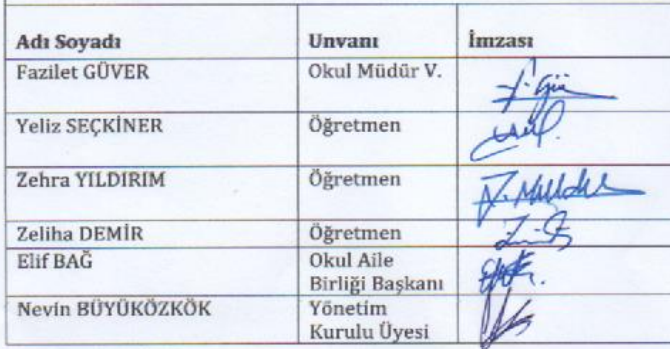 Adı Soyadı Unvanı İmzası
Fazilet GÜVER Okul Müdür V.
Yeliz SEÇKİNER Öğretmen
Zehra YILDIRIM Öğretmen
Zeliha DEMİR Öğretmen
Elif BAĞ Okul Aile
Birliği Başkanı
Nevin BÜYÜKÖZKÖK Yönetim
Kurulu Üyesi